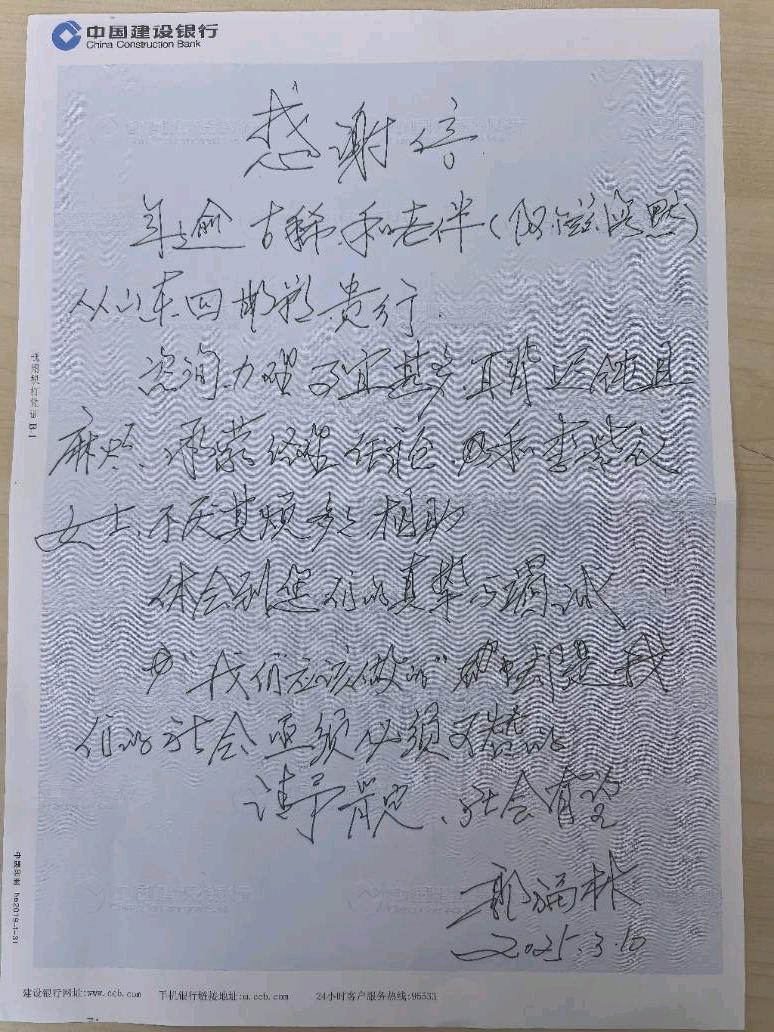 中国建设银行
China Construction Bank
感谢信
年逾古稀、和老伴(阿兹海默)
从山东回邯郸贵行.
咨询、办理事宜甚多耳背迟钝且
麻烦、承蒙经理 和李紫
女士、不厌其烦多多相助
体会到您们的真挚与竭诚
"我们应该做的" 却是我
们的社会亟须必须不
请予肯定、社会有
郭福林
2025.3.10
建设银行网址:www.ccb.com 手机银行链接地址:m.ccb.com 24小时客户服务热线:95533